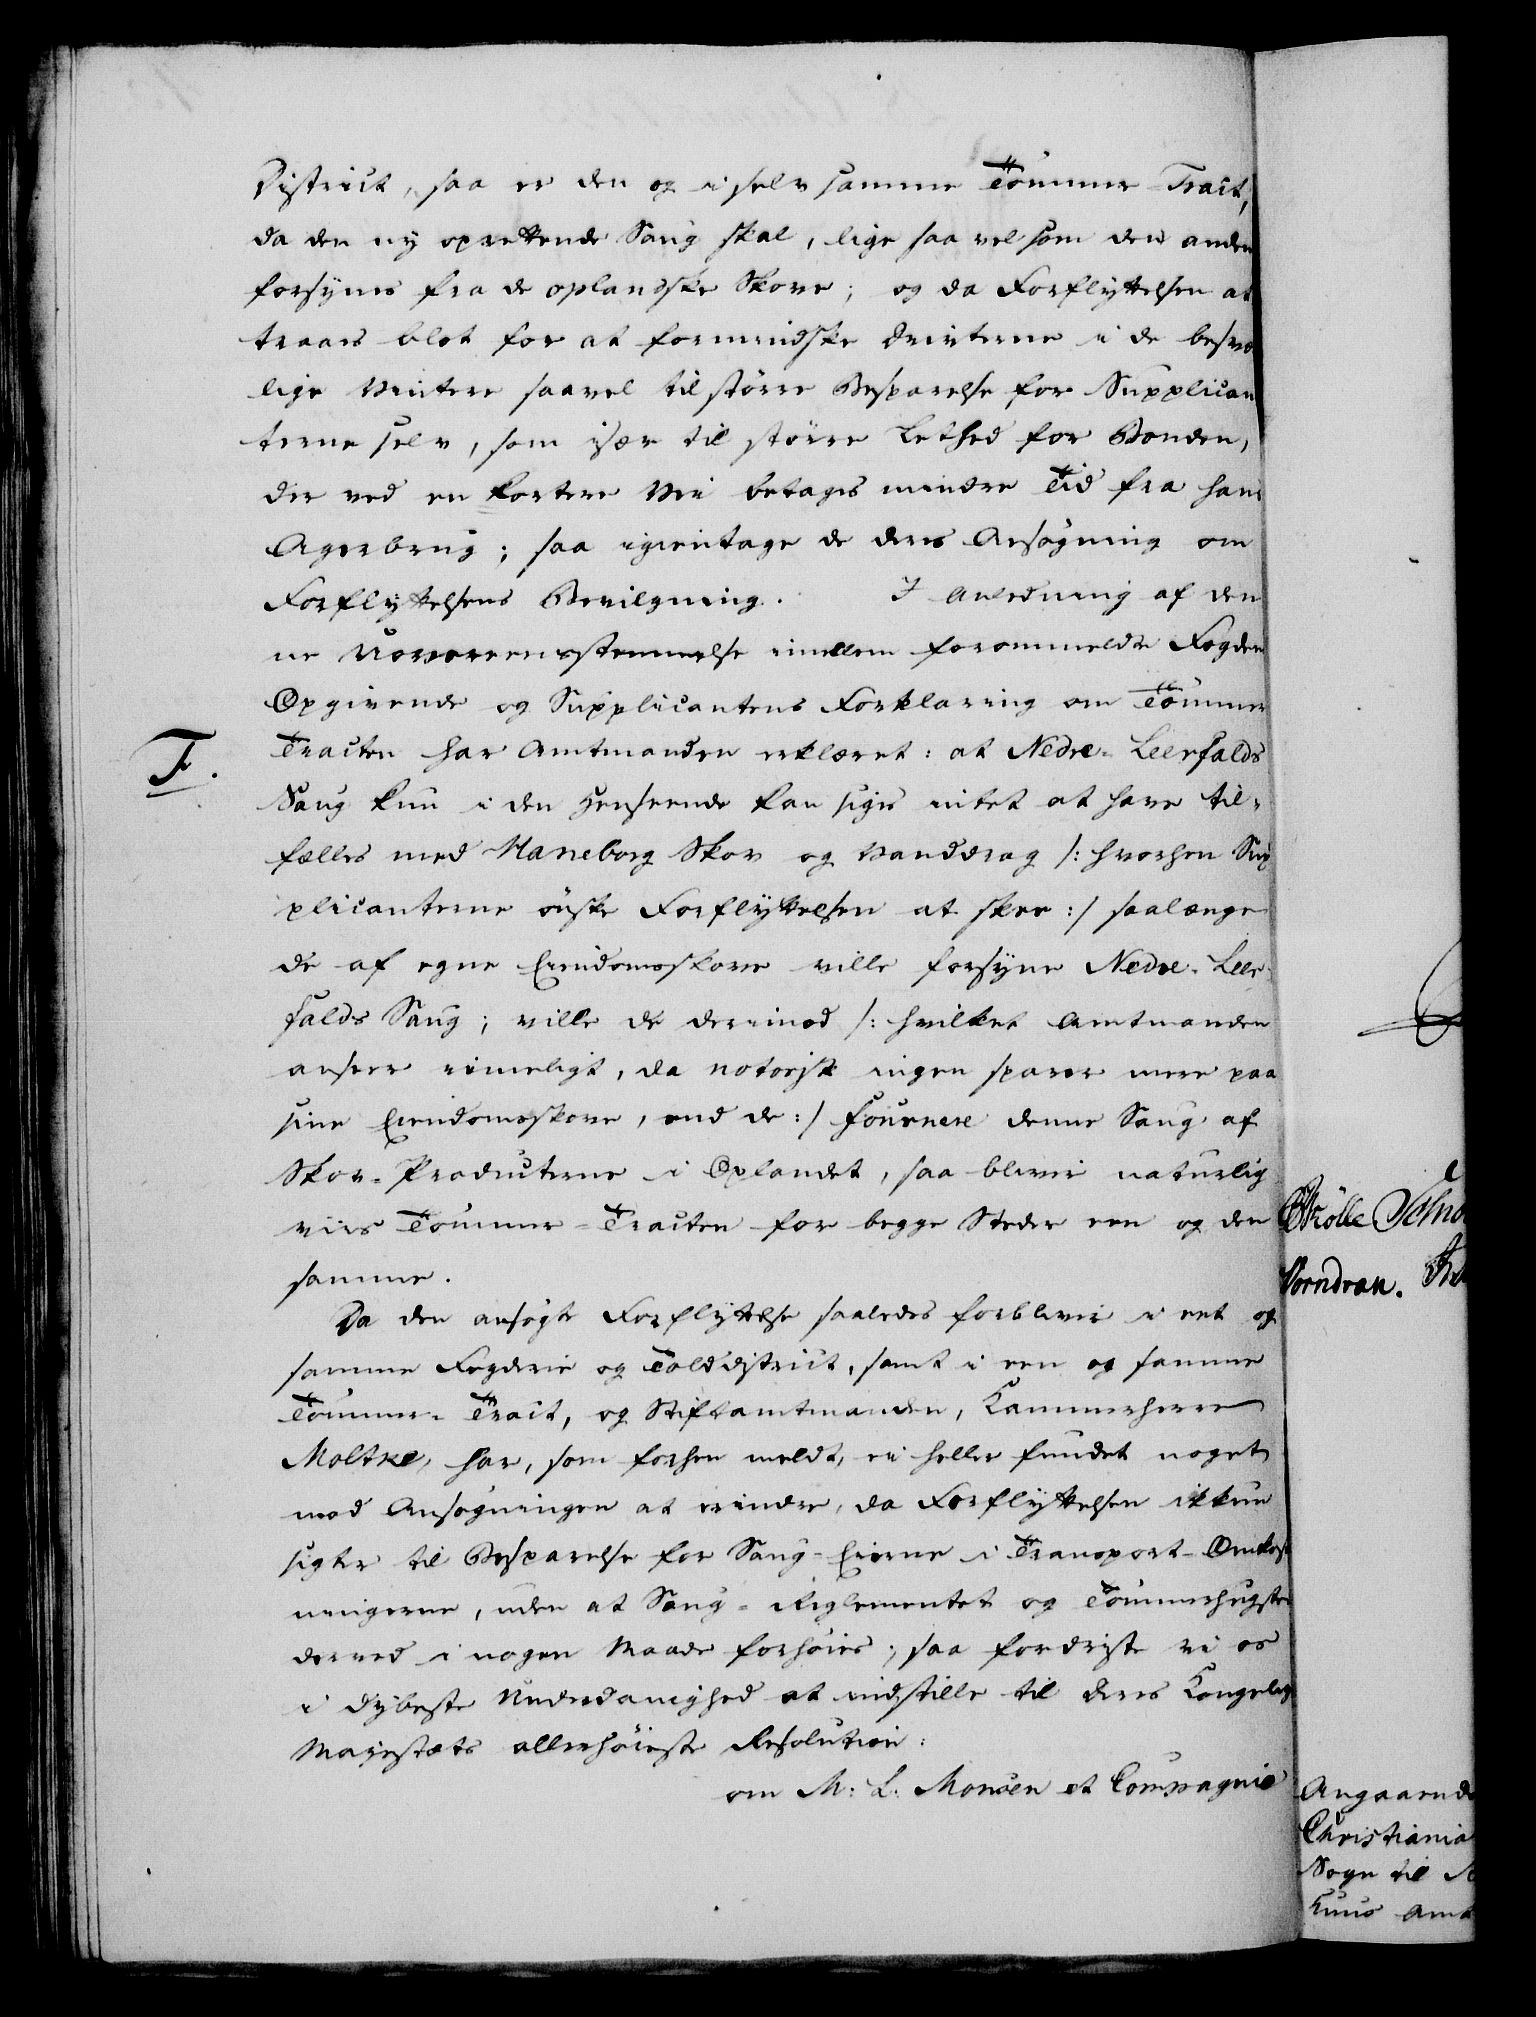 District, saa er den og i selv samme Tømmer-Tract,
da den ny oprettende Saug skal, lige saa vel som den anden
forsynes fra de oplandske Skove; og da Forflyttelsen at
traaes blot for at formindske Drivterne i de besvær
lige Vintere saavel til større Besparelse for Supplican
terne selv, som især til større Lethed for Bonden,
der ved en kortere Vei betages mindre Tid fra hans
Agerbrug; saa igientage de deres Ansøgning om
Forflyttelsens Bevilgning. I Anledning af den
ne Uovereensstemmelse imellem forommeldte Fogdens
Opgivende og Supplicantens Forklaring om Tømmer
Tracten har Amtmanden erklæret: at Nedre-Leerfalds
F.
Saug kun i den Henseende kan siges intet at have til-
fælles med Haneborg Skov og Vanddrag /: hvorhen Sup
plicanterne ønske Forflyttelsen at skee :/ saalænge
de af egne Eiendomsskove ville forsyne Nedre-Leer-
falds Saug; ville de derimod /: hvilket Amtmanden
anseer rimeligt, da notorisk ingen sparer mere paa
sine Eiendomsskove, end de :/ fournere denne Saug af
Skov-Producterne i Oplandet, saa bliver naturlig
viis Tømmer-Tracten for begge Steder een og den
samme.
Da den ansøgte Forflyttelse saaledes forbliver i eet og
samme Fogderie og Tolddistrict, samt i een og samme
Tømmer-Tract, og Stiftamtmanden, Kammerherre
Moltke, har, som forhen meldt, ei heller fundet noget
mod Ansøgningen at erindre, da Forflyttelsen ikkun
sigter til Besparelse for Saug-Eierne i Transport-Omkost
ningerne, uden at Saug-Reglementet og Tømmerhugsten
derved i nogen Maade forhøies; saa fordriste vi os
i dybeste Underdanighed at indstille til Deres Kongelig
Majestæts allerhøieste Resolution:
om M: L: Monsen et Compagnie
Wrölle
Vorndran.
Angaaende
Christiania
Sogn til
Huus Amt